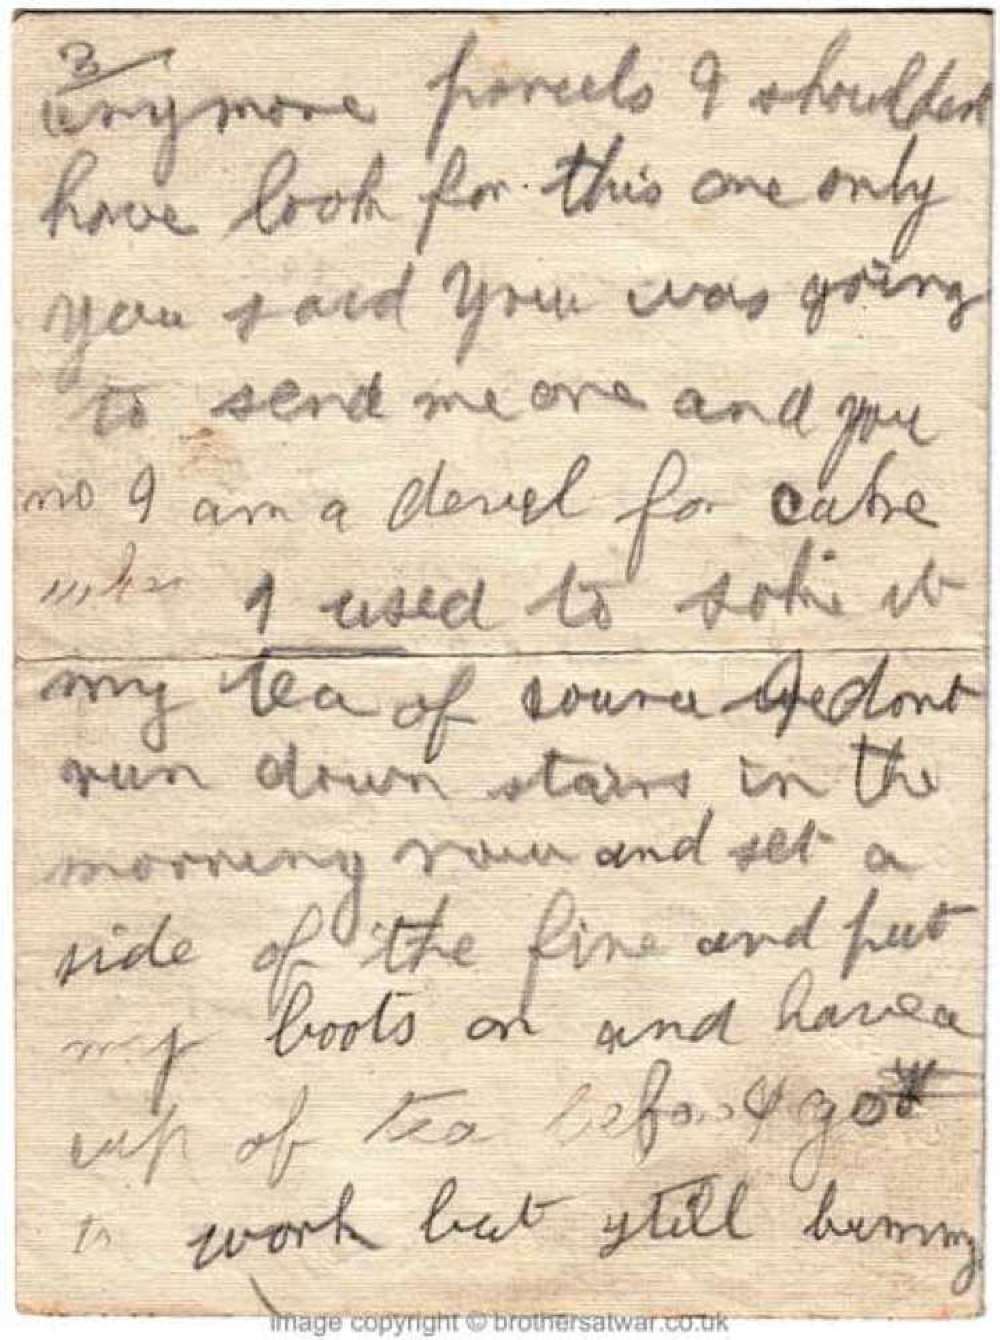 3
anymore parcels I shouldent
have look for this one only
you said you was going
to send me one and you
no I am a devil for cake
I used to soke it
my tea of course I dont
run down stairs in the
morning now and set a
side of the fire and put
my boots on and have a
cup of tea before I go
to work but still bunny
Image copyright © brothersatwar.co.uk